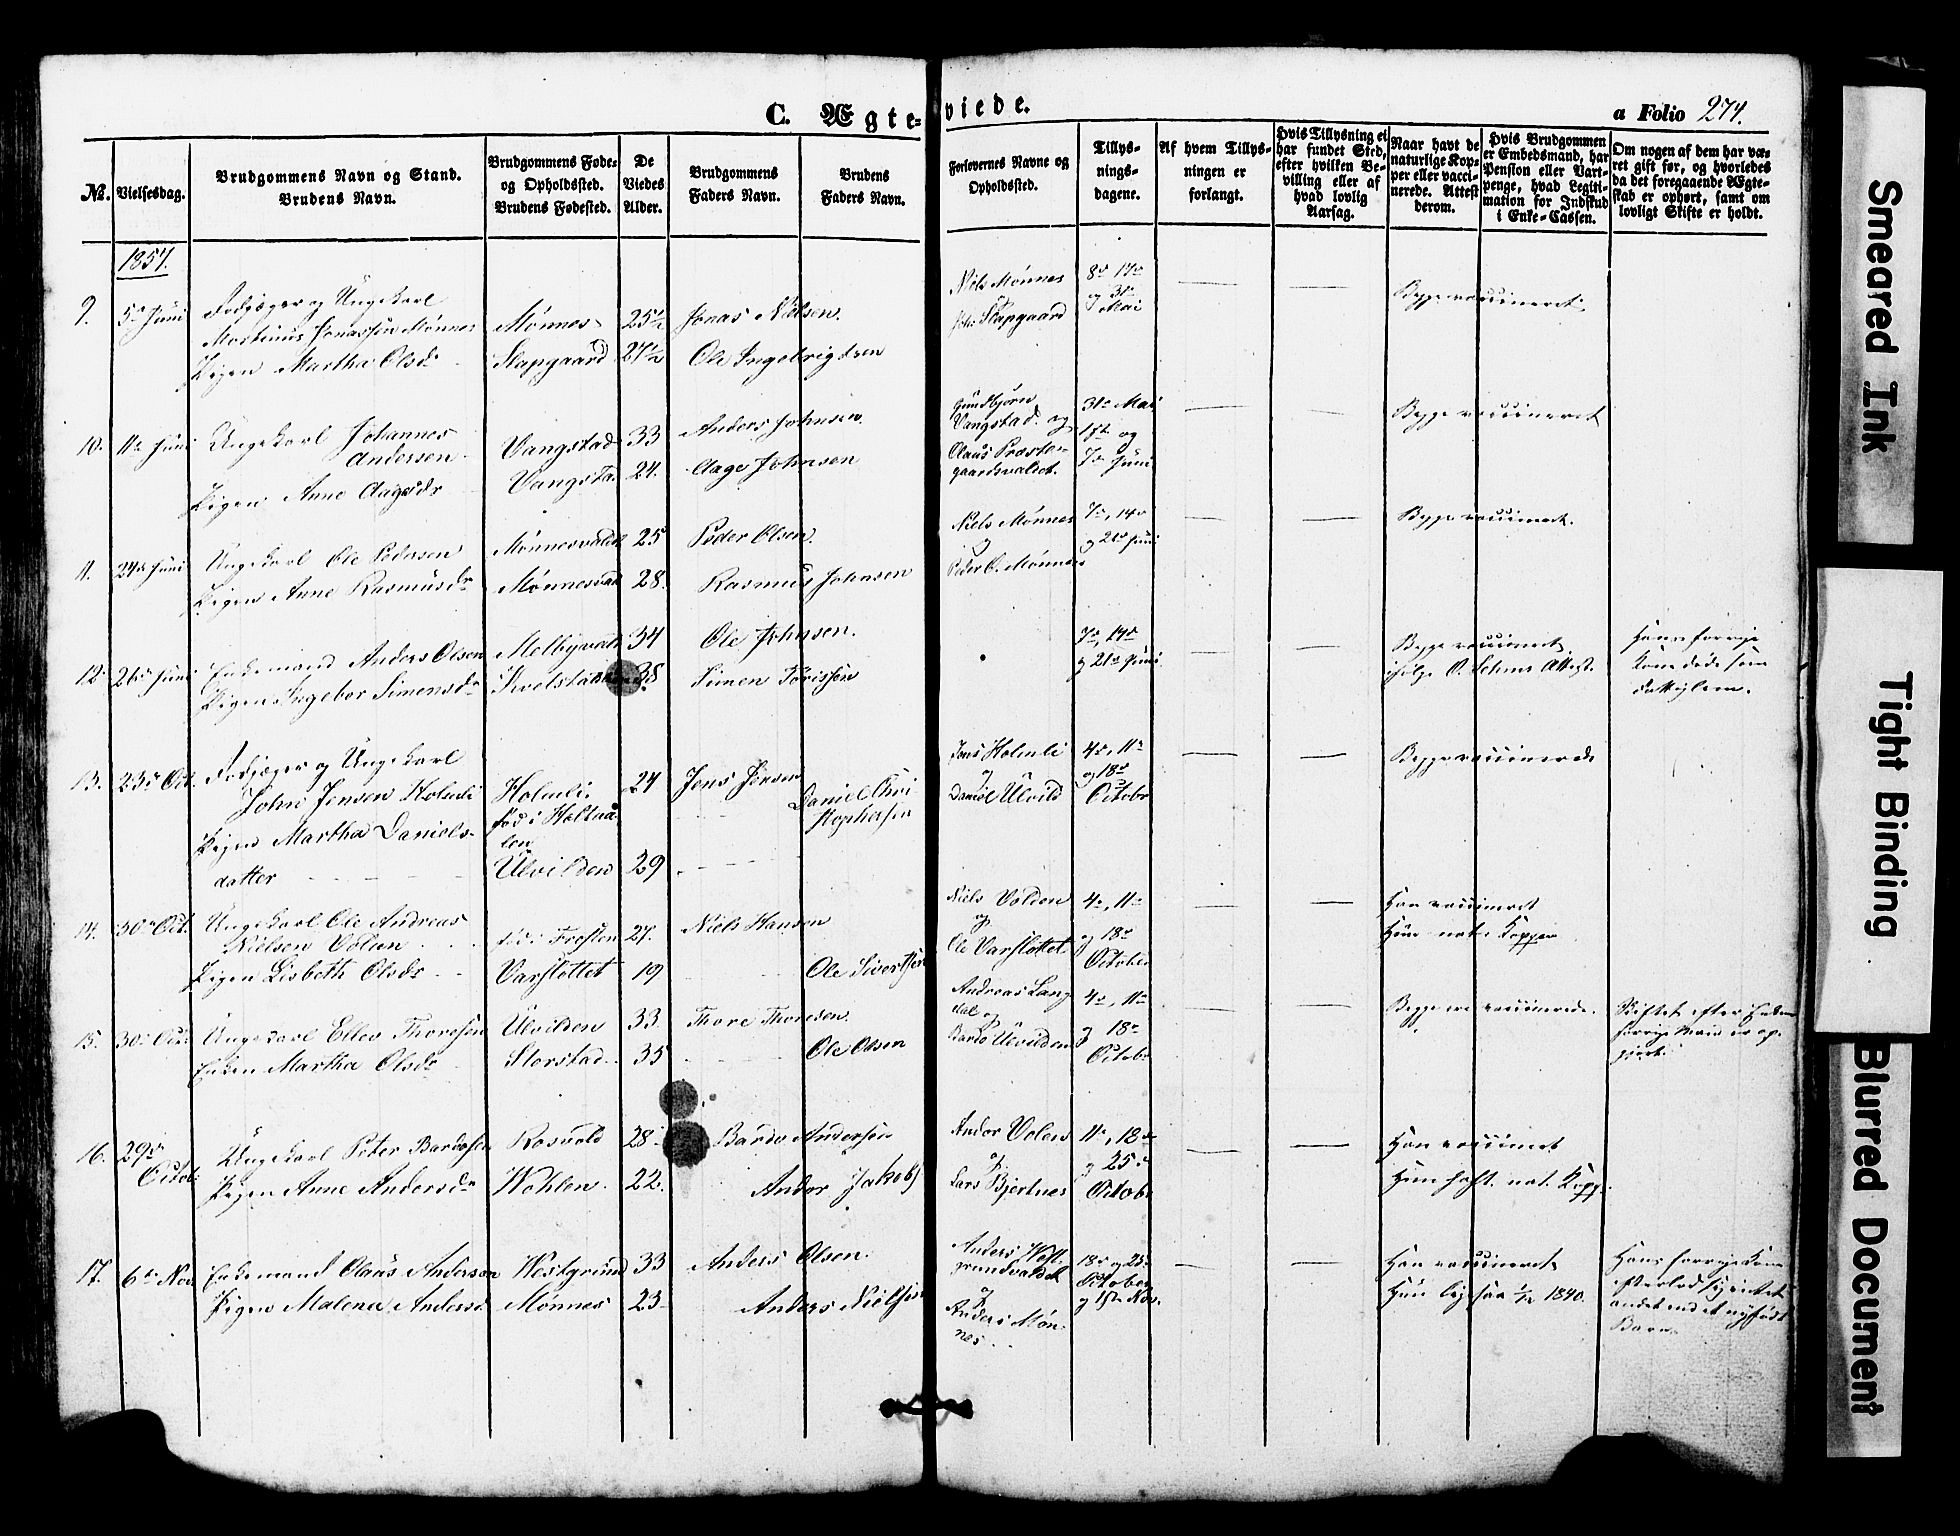 C. Ægteviede.
a Folio 274.
№.
Vielsesdag.
Brudgommens Navn og Stand.
Brudens Navn.
Brudgommens Føde-
og Opholdssted.
Brudens Fødested.
De
Viedes
Alder.
Brudgommens
Faders Navn.
Brudens
Faders Navn.
Forlovernes Navne og
Opholdssted.
Tillys-
nings-
dagene.
Af hvem Tillys-
ningen er
forlangt.
Hvis Tillysning ei
har fundet Sted,
efter hvilken Be-
villing eller af
hvad lovlig
Aarsag.
Naar havt de
naturlige Kop-
per eller vacci-
nerede. Attest
derom.
Hvis Brudgommen
er Embedsmand, har
Pension eller Vart-
penge, hvad Legiti-
mation for Indskud
i Enke-Cassen.
Om nogen af dem har væ-
ret gift før, og hvorledes
da det foregaaende Ægte-
stad er ophørt, samt om
lovligt Skifte er holdt.
1857.
9. 5te Juni
Fodjæger og Ungekarl
Mortinus Jonassen Mønnes
Pigen Martha Olsdr
Mønnes
Slapgaard
25½
27½
Jonas Nielsen.
Ole Ingebrigdsen
Niels Mønnes
Slapgaard
8de 17de
og 31te
Mai
Begge vaccineret
10. 11te Juni
Ungekarl Johannes
Andersen
Pigen Anne Aagesdr
Vangstad
Vangstad
33
24.
Anders Johnsen.
Aage Johnsen
Gundbjørn
Vangstad og
Claus Præste-
gaardsvaldet.
31te Mai
1ste og
7de Juni
Begge vaccineret
11. 24de Juni
Ungekarl Ole Pedersen
Pigen Anne Rasmusdr
Mønnesvald
Mønnesvald
25
28.
Peder Olsen.
Rasmus Johnsen
Niels Mønnes
og
Peder O. Mønnes
7de, 14de
og 21de Juni
Begge vaccineret.
12 26de Juni
Enkemand Anders Olsen
Pigen Ingebor Simensdr
Melbyvald
34
38.
Ole Johnsen.
Simen Tørissen
7de, 14de
og 21de Juni
Begge vaccineret
ifølge O. Lehns Attest.
Hans forrige
Kone døde som
13. 23de Oct.
Fodjæger og Ungekarl
John Jensen Holmli
Pigen Martha Daniels-
datter
Holmli.
fød i Holtaa-
len
Ulvilden
24
29
Jens Jensen
Daniel Chri
stophersen
Jens Holmli
og
Daniel Ulvild
4de, 11te
og 18de
Octobr
Begge vaccinerede
14. 30te Oct.
Ungekarl Ole Andreas
Nielsen Volden
Pigen Lisbeth Olsdr
fød i Frosten
Varslottet
27.
19
Niels Hansen
Ole Sivertsen
Niels Volden
og
Ole Varslottet
4de, 11te
og 18de
October
Han vaccineret
Hun nat. Kopper
15. 30te Oct.
Ungekarl Ellev Thoresen
Enken Martha Olsdr
Ulvilden
Storstad
33.
35
Thore Thoresen.
Ole Olsen
Andreas Lang
dal og
Bardo Ulvilden
4de, 11te
og 18de
Octobr
Begge ere vaccinerede.
Skiftet efter Enkens
forrige Mand er op-
gjort.
16. 29de
Octob.
Ungekarl Peter Bardosen
Pigen Anne Andersdr
Rosvold
Wohlen.
28
22.
Bardo Andersen
Andor Jakobs
Andor Volen
og
Lars Bjertnes
11te, 18de
og 25de
Octobr
Han vaccineret
Hun haft nat. Kopp.
17. 6te Nov
Enkemand Claus Anderson
Pigen Malena Andersd
Westgrund
Mønnes
33
23
Anders Olsen.
Anders Nielsen
Anders West-
grundvaldet
og
Anders Møn-
nes
18de og 25de
October
og 1ste Nov.
Han vaccineret
Hun ligesaa 1/12 1840.
Hans forrige Kone
efterlod sig intet
andet end et nyfødt
Barn.
Smeared Ink
Tight Binding
Blurred Document